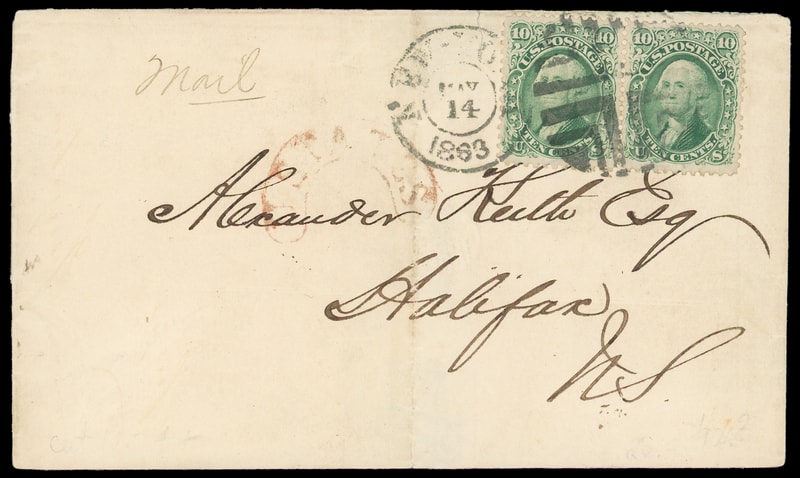 Mail
NEW-YO
MAY
14
1863
10 U.S. POSTAGE 10
U TEN CENTS S
10 U.S. POSTAGE 10
U TEN CENTS S
Alexander Keith Esq
Halifax
N.S.